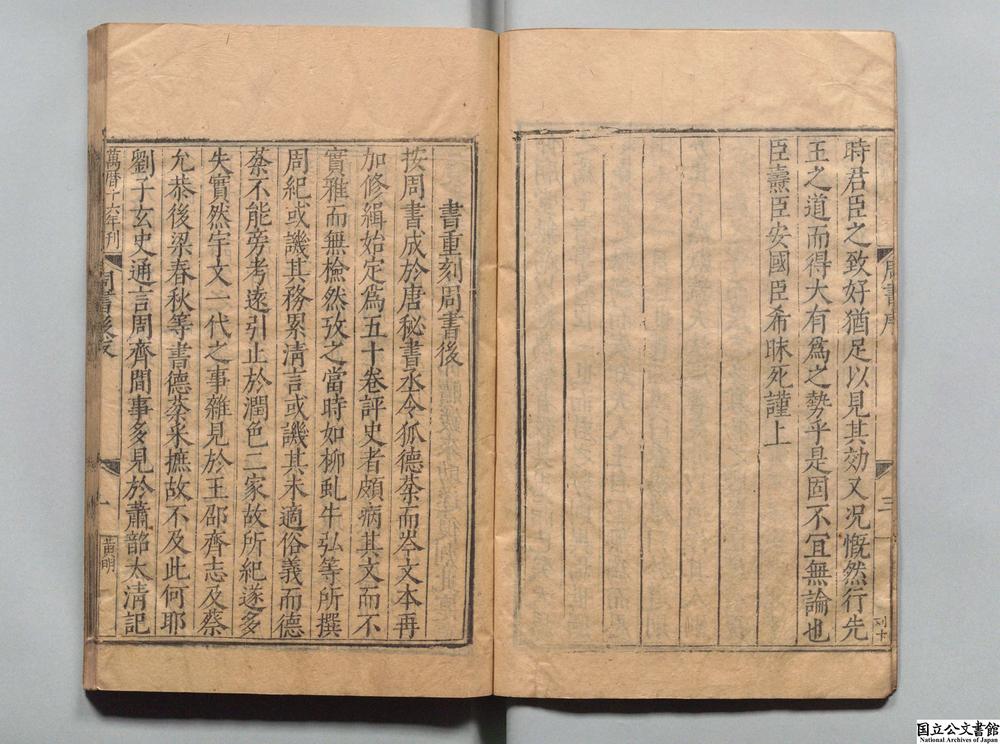 時君臣之致好猶足以見其効又况慨然行先
王之道而得大有爲之勢乎是固不冝無論也
臣燾臣安國臣希昧死謹上
周書序
三
書重刻周書後
按周書成於唐秘書丞令狐德棻而岑文本再
加修緝始定爲五十卷評史者頗病其文而不
實雅而無檢然攷之當時如柳虬牛弘等所撰
周紀或譏其務累清言或譏其未適俗義而德
棻不能旁考遠引止於潤色二家故所紀遂多
失實然宇文一代之事雜見於王邵齊志及蔡
允恭後梁春秋等書德棻采摭故不及此何耶
劉子玄史通言周齊間事多見於蕭韶太清記
萬曆十六年刊
周書後
黄明
国立公文書館
National Archives of Japan